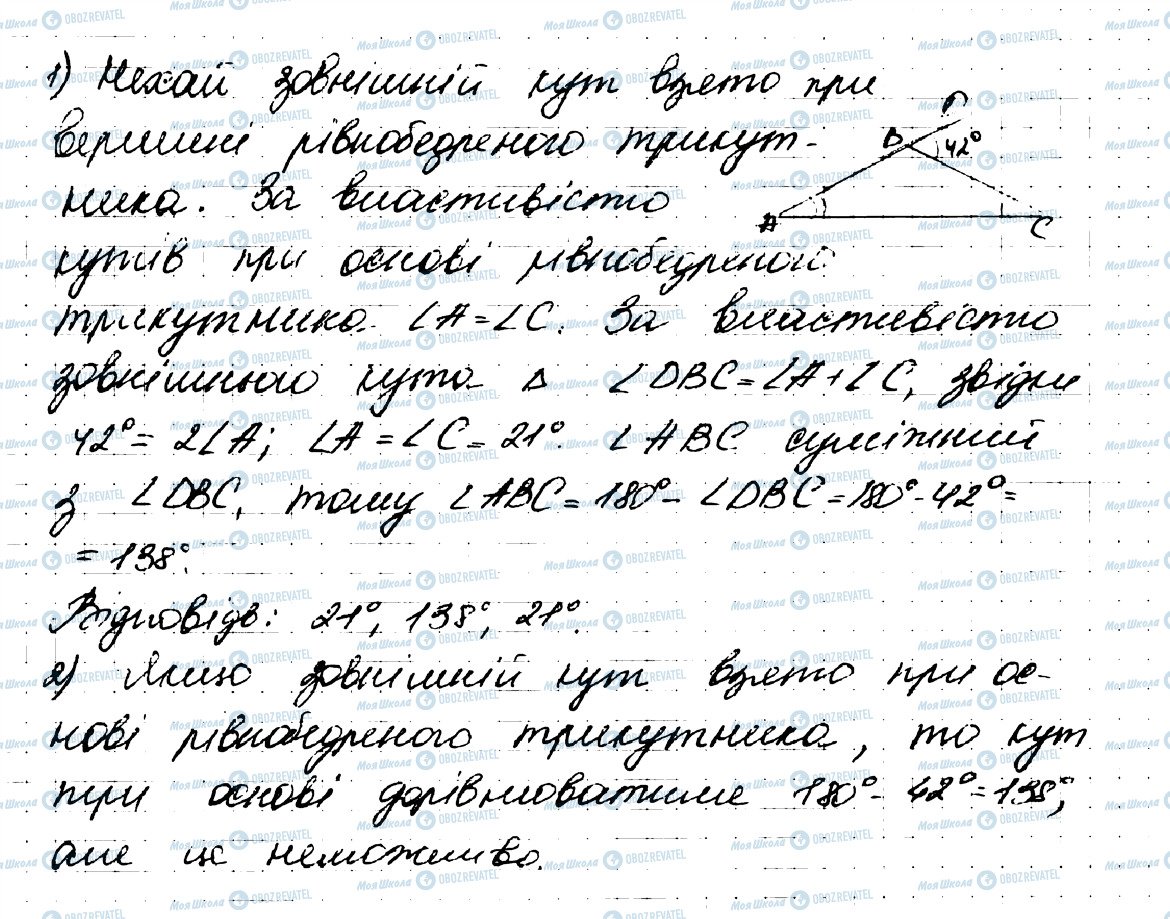 1) Нехай зовнішній кут взято при
вершині рівнобедреного трикут-
ника. За властивістю
кутів при основі рівнобедреного
трикутника ∠A = ∠C. За властивістю
зовнішнього кута Δ ∠DBC = ∠A + ∠C, звідки
42° = 2∠A; ∠A = ∠C = 21°. ∠ABC суміжний
з ∠DBC, тому ∠ABC = 180° - ∠DBC = 180° - 42° =
= 138°.
Відповідь: 21°, 138°, 21°.
2) Якщо зовнішній кут взято при ос-
нові рівнобедреного трикутника, то кут
при основі дорівнюватиме 180° - 42° = 138°,
але це неможливо.
42°
A
C
Моя Школа OBOZREVATEL